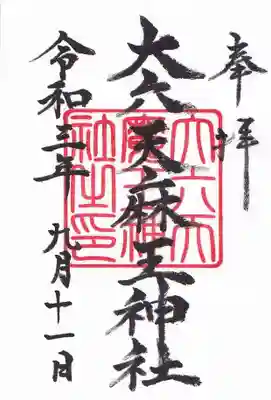 奉拝
大六天麻王神社
令和三年 九月十一日
大六天
社之印